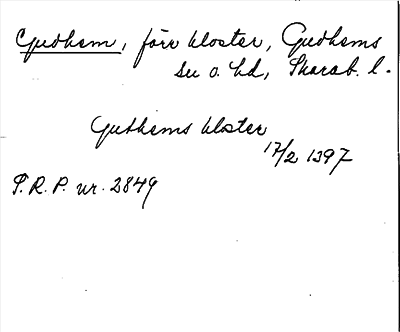 Gudhem, förr kloster, Gudhems
sn o. hd, Skarab. l.
Guthems kloster
17/2 1397
S.R.P. nr. 2849